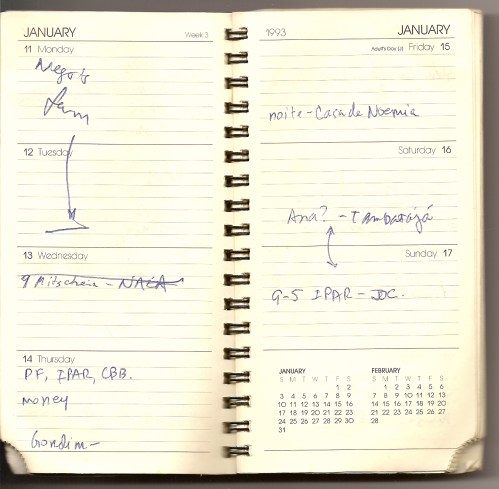 JANUARY
Week 3
11 Monday
12 Tuesday
13 Wednesday
9 Mitschein - NAEA
14 Thursday
PF, IPAR, CBB.
money
Gondim -
1993
JANUARY
Friday 15
noite - Casa de Noemia
Saturday 16
Ana? - Tambatájá
Sunday 17
9-5 IPAR - JDC.
JANUARY
S M T W T F S
1 2
3 4 5 6 7 8 9
10 11 12 13 14 15 16
17 18 19 20 21 22 23
24 25 26 27 28 29 30
31
FEBRUARY
S M T W T F S
1 2 3 4 5 6
7 8 9 10 11 12 13
14 15 16 17 18 19 20
21 22 23 24 25 26 27
28